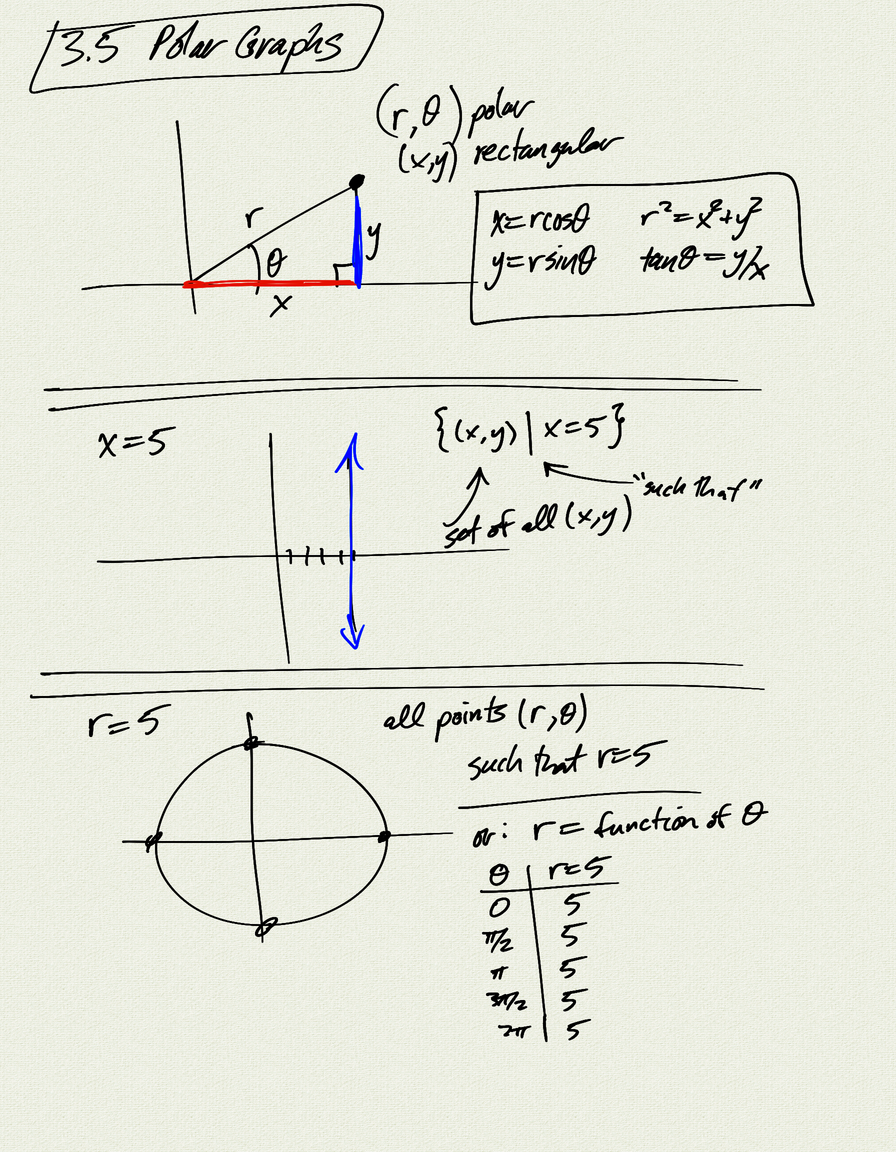 3.5 Polar Graphs
(r, θ) polar
(x,y) rectangular
r
θ
y
x
x=rcosθ r²=x²+y²
y=rsinθ tanθ=y/x
x=5
{(x,y) | x=5}
"such that"
set of all (x,y)
r=5
all points (r,θ)
such that r=5
or: r = function of θ
θ r=5
0 5
π/2 5
π 5
3π/2 5
2π 5